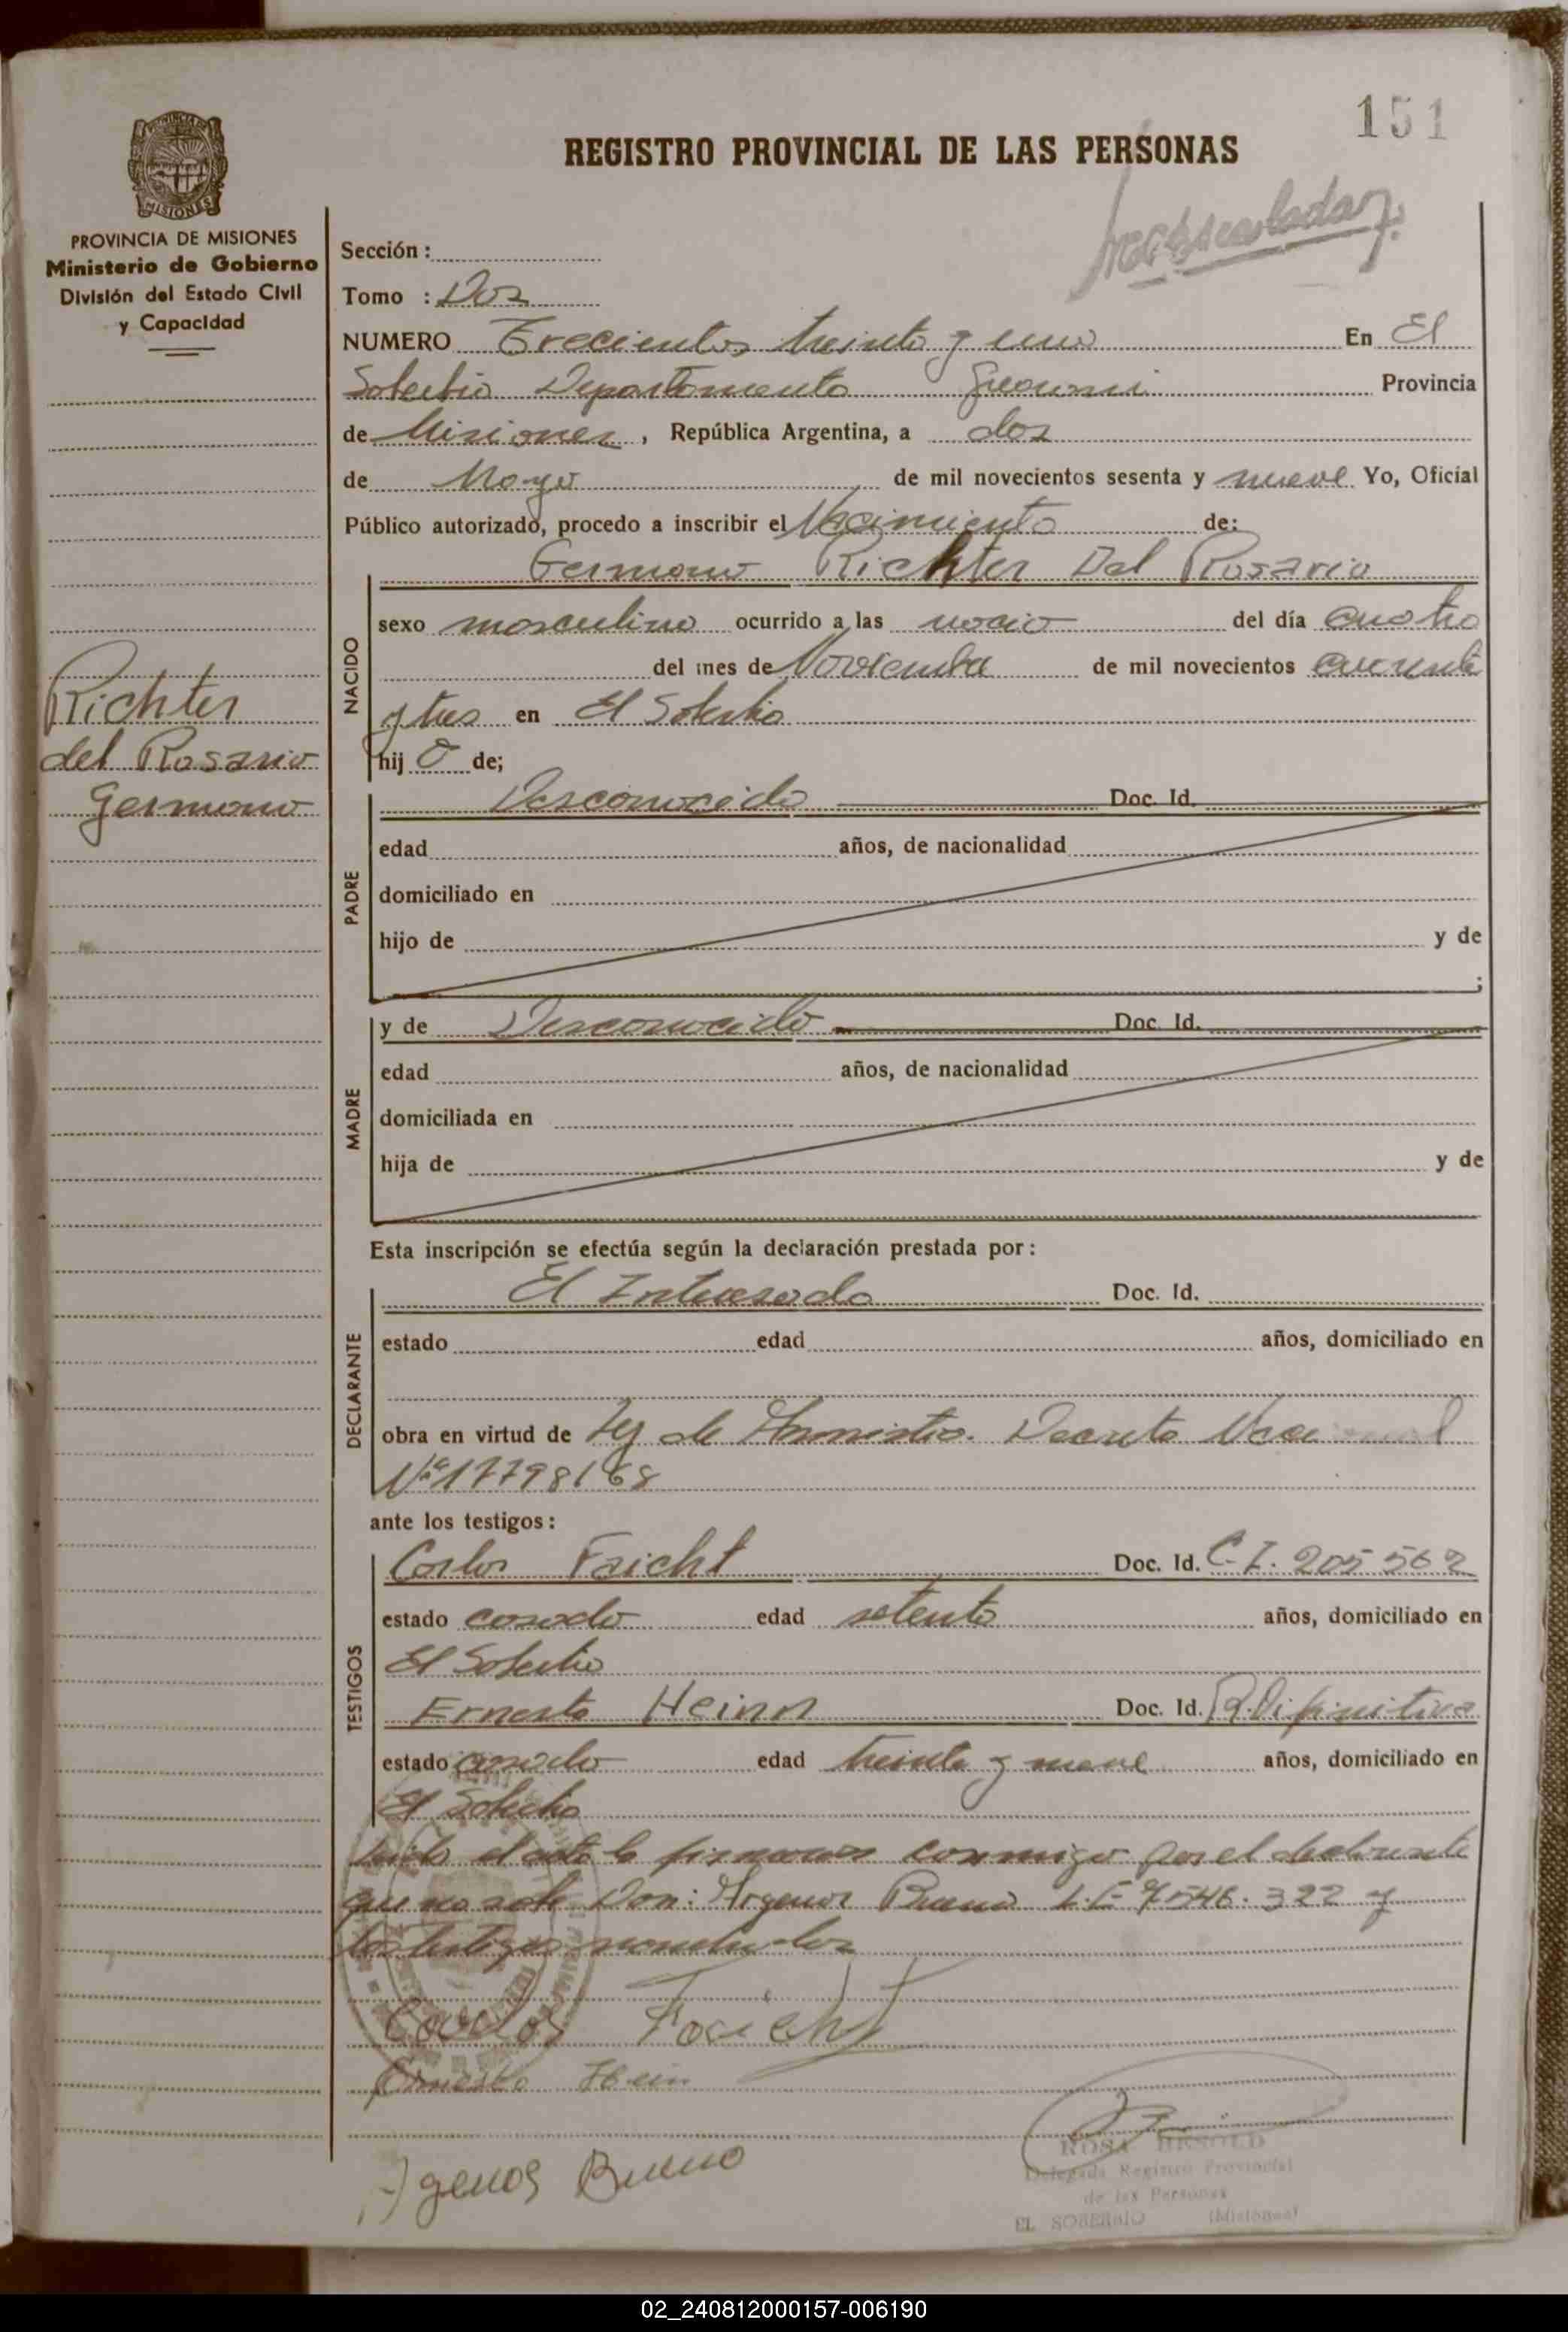 151
REGISTRO PROVINCIAL DE LAS PERSONAS
PROVINCIA DE MISIONES
Ministerio de Gobierno
División del Estado Civil
y Capacidad
Sección :
Tomo : Dos
NUMERO Trecientos treinta y uno En El
Soberbio Departamento Guarani Provincia
de Misiones, República Argentina, a dos
de Mayo de mil novecientos sesenta y nueve Yo, Oficial
Público autorizado, procedo a inscribir el Nacimiento de:
Germano Richter Del Rosario
NACIDO
sexo masculino ocurrido a las del día cuatro
del mes de Noviembre de mil novecientos cuarenta
y tres en El Soberbio
hij o de;
Richter
del Rosario
Germano
PADRE
Desconocido Doc. Id.
edad años, de nacionalidad
domiciliado en
hijo de y de
;
MADRE
y de Desconocido Doc. Id.
edad años, de nacionalidad
domiciliada en
hija de y de
Esta inscripción se efectúa según la declaración prestada por :
DECLARANTE
El Interesado Doc. Id.
estado edad años, domiciliado en
obra en virtud de Ley de Amnistia. Decreto Nacional
Nº 17798/68
ante los testigos :
TESTIGOS
Carlos Faicht Doc. Id. C.I. 205562
estado casado edad setenta años, domiciliado en
El Soberbio
Ernesto Heinn Doc. Id. Definitiva
estado casado edad treinta y nueve años, domiciliado en
El Soberbio
Leido el acta la firmaron conmigo por el declarante
que no sabe Don: Argenor Bueno L.E 7.546.322 y
los testigos nombrados
Carlos Faicht
Ernesto Hein
Agenor Bueno
ROSA
Delegada Registro Provincial
de las Personas
EL SOBERBIO (Misiones)
02_240812000157-006190